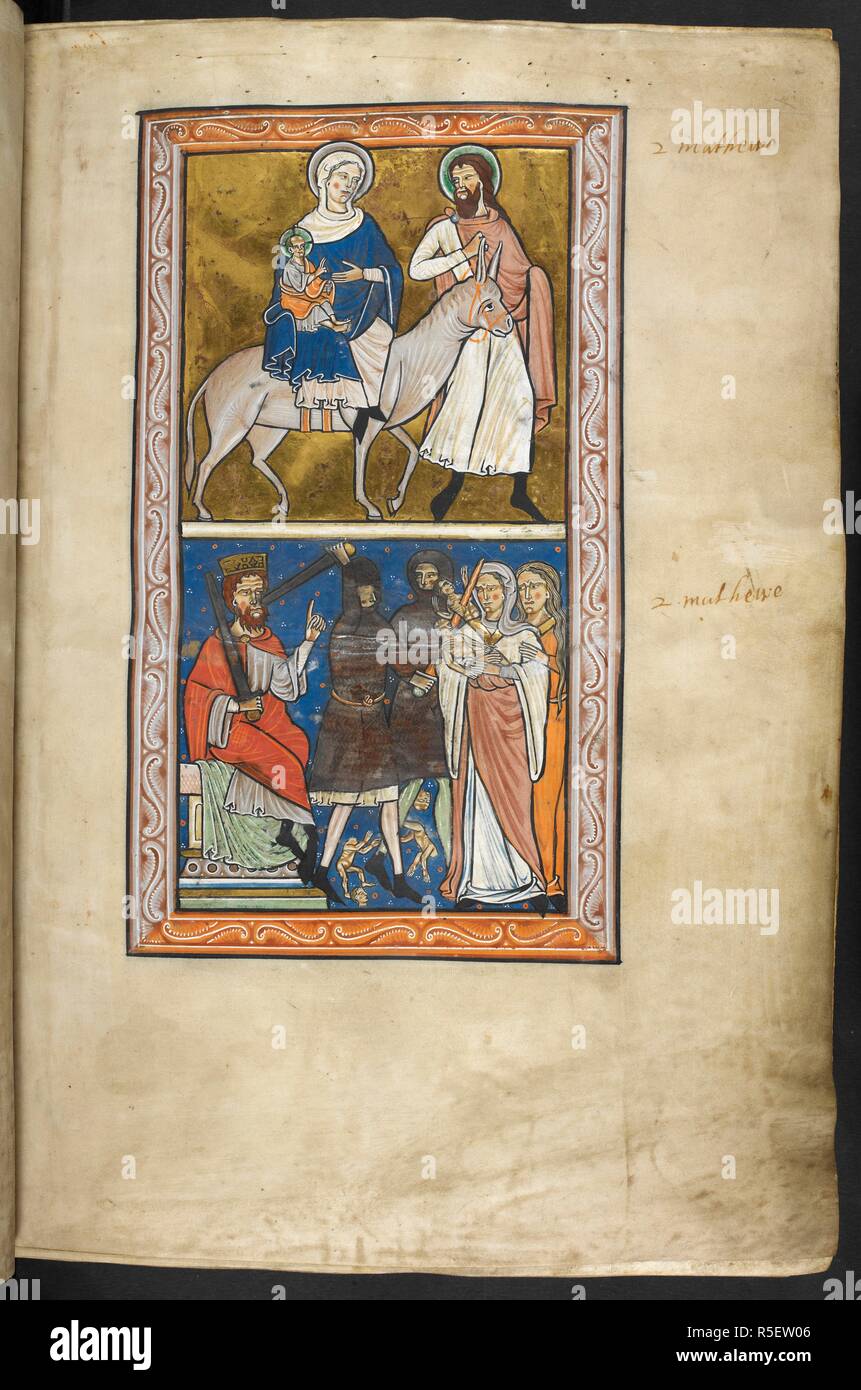 2 mathewe
2 mathewe
alamy
Image ID: R5EW06
www.alamy.com